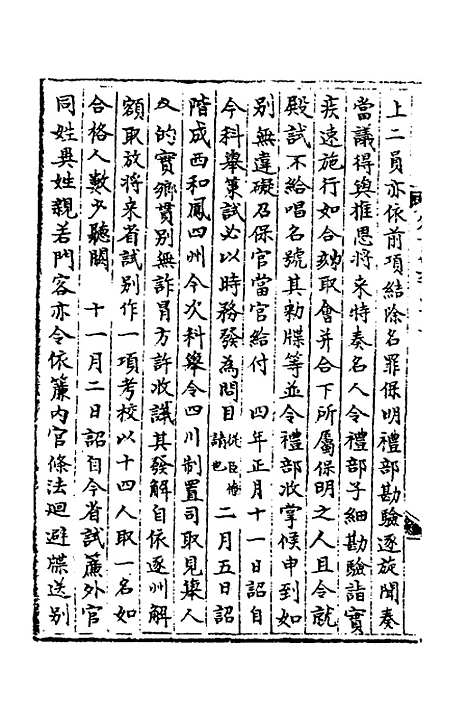 上二員亦依前項結除名罪保明禮部勘驗逐旋聞奏
當議得與推恩將來特奏名人令禮部子細勘驗詣實
疾速施行如合勑取會并合下所屬保明之人且令就
殿試不給唱名號其勑牒等並令禮部收掌候申到如
別無違礙召保官當官給付　四年正月十一日詔自
今科舉策試必以時務發為問目從臣僚請也二月五日詔
階成西和鳳四州今次科舉令四川制置司取見舉人
的實鄉貫別無詐冒方許收試其發解自依逐州解
額取放將來省試別作一項考校以十四人取一名如
合格人數少聽闕　十一月二日詔自今省試簾外官
同姓異姓親若門客亦令依簾內官條法迴避牒送別